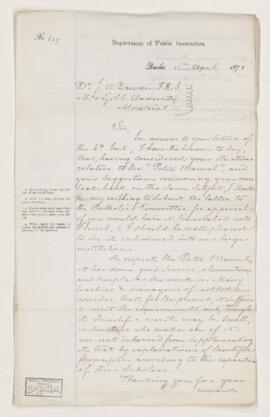 No. 617
Department of Public Instruction
Quebec, 12th April 1873
Dr. J. W. Dawson F.R.S.
McGill University
Montreal
Sir,
In answer to your letter of
the 6th Inst, I have the honor to say,
that, having considered your
relative to the "Peter Manual", and
your suggestions concerning your own
text book on the same subject, I shall
be very willing to submit the latter to
the Catholic Committee for approval
if you would have it translated into
French, & I should be well pleased
to see it introduced into our large
institutions.
As respects the Peter Manual,
it has done good service, elementary
and simple as the work is. Many
teachers & managers of
consider that, for the present, it suffices
to meet the requirements, and though
its scientific merits may be small,
who make use of it
are not debarred from supplementing
its text by explanations of scientific
principles according to the capacities
of their Scholars.
Thanking you for your
remarks